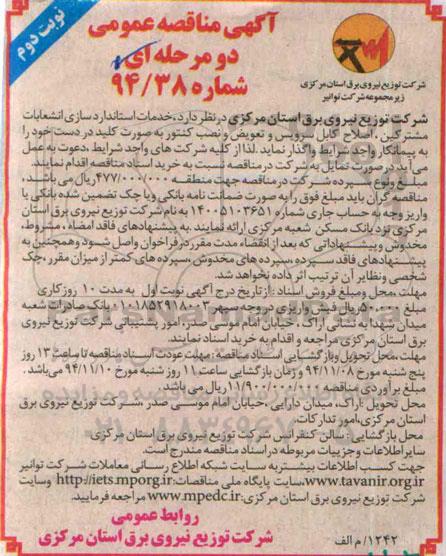 نوبت دوم
آگهی مناقصه عمومی
دو مرحله ای
شماره ۹۴/۳۸
شرکت توزیع نیروی برق استان مرکزی
زیرمجموعه شرکت توانیر
شرکت توزیع نیروی برق استان مرکزی در نظر دارد، خدمات استاندارد سازی انشعابات
مشترکین، اصلاح کابل سرویس و تعویض و نصب کنتور به صورت کلید در دست خود را
به پیمانکار واجد شرایط واگذار نماید. لذا از کلیه شرکت های واجد شرایط، دعوت به عمل
می آید در صورت تمایل به شرکت در مناقصه نسبت به خرید اسناد مناقصه اقدام نمایند.
مبلغ ونوع سپرده شرکت در مناقصه جهت منطقه ۴۷۷/۰۰۰/۰۰۰ ریال می باشد،
مناقصه گران باید مبلغ فوق را به صورت ضمانت نامه بانکی ویا چک تضمین شده بانکی یا
واریز وجه به حساب جاری شماره ۱۴۰۰۵۱۰۳۶۵۱ به نام شرکت توزیع نیروی برق استان
مرکزی نزد بانک مسکن شعبه مرکزی ارائه نمایند. به پیشنهادهای فاقد امضاء، مشروط،
مخدوش وپیشنهاداتی که بعد از انقضاء مدت مقرر در فراخوان واصل شود وهمچنین به
پیشنهادهای فاقد سپرده، سپرده های مخدوش، سپرده های کمتر از میزان مقرر، چک
شخصی ونظایر آن ترتیب اثر داده نخواهد شد.
مهلت، محل ومبلغ فروش اسناد: از تاریخ درج آگهی نوبت اول به مدت ۱۰ روز کاری
مبلغ ریال فیش واریزی در وجه سپهر ۰۱۰۱۸۵۲۹۱۸۰۰۳ بانک صادرات شعبه
میدان شهدا به نشانی اراک، خیابان امام موسی صدر، امور پشتیبانی شرکت توزیع نیروی
برق استان مرکزی مراجعه و اقدام به خرید اسناد نمایند.
مهلت، محل تحویل وبازگشایی اسناد مناقصه: مهلت عودت اسناد مناقصه تا ساعت ۱۳ روز
پنج شنبه مورخ ۹۴/۱۱/۰۸ و زمان بازگشایی ساعت ۱۱ روز شنبه مورخ ۹۴/۱۱/۱۰ می باشد.
مبلغ برآوردی مناقصه ۱۱/۹۰۰/۰۰۰/۰۰۰ ریال می باشد.
محل تحویل: اراک، میدان دارایی، خیابان امام موسی صدر، شرکت توزیع نیروی برق
استان مرکزی، امور تدارکات.
محل بازگشایی: سالن کنفرانس شرکت توزیع نیروی برق استان مرکزی.
سایر اطلاعات وجزییات مربوطه در اسناد مناقصه مندرج است.
جهت کسب اطلاعات بیشتر به سایت شبکه اطلاع رسانی معاملات شرکت توانیر
www.tavanir.org.ir، سایت پایگاه ملی مناقصات: http://iets.mporg.ir وسایت
شرکت توزیع نیروی برق استان مرکزی: www.mpedc.ir مراجعه فرمایید.
روابط عمومی
شرکت توزیع نیروی برق استان مرکزی
۱۲۴۲/ م الف